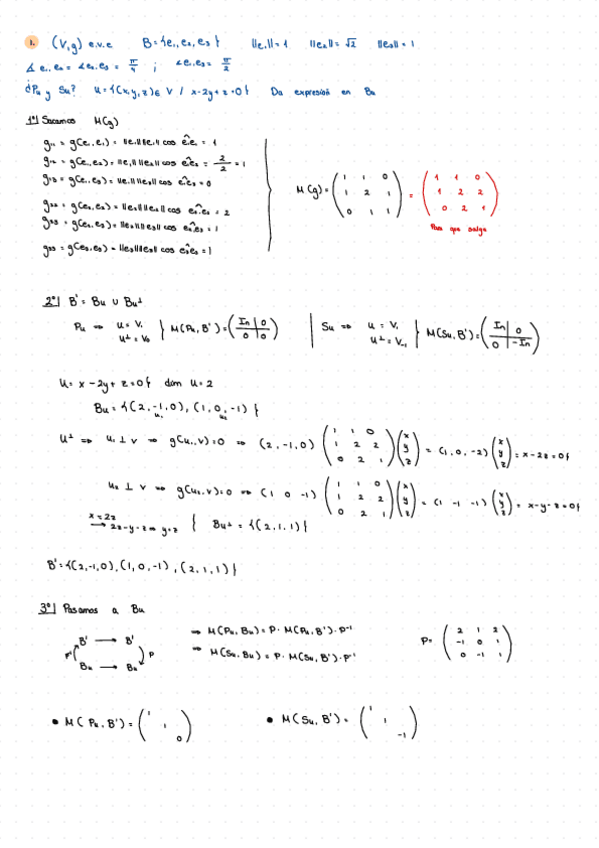 1. (V,g) e.v.e B = {e₁, e₂, e₃} ||e₁|| = 1 ||e₂|| = √2 ||e₃|| = 1
∡ e₁, e₂ = ∡ e₂, e₃ = π/4 ; ∡ e₁, e₃ = π/2
¿Pu y Su? U = {(x,y,z) ∈ V / x-2y+z=0} Da expresión en Bu
1º| Sacamos M(g)
g₁₁ = g(e₁, e₁) = ||e₁|| ||e₁|| cos e₁e₁ = 1
g₁₂ = g(e₁, e₂) = ||e₁|| ||e₂|| cos e₁e₂ = 2/2 = 1
g₁₃ = g(e₁, e₃) = ||e₁|| ||e₃|| cos e₁e₃ = 0
g₂₂ = g(e₂, e₂) = ||e₂|| ||e₂|| cos e₂e₂ = 2
g₂₃ = g(e₂, e₃) = ||e₂|| ||e₃|| cos e₂e₃ = 1
g₃₃ = g(e₃, e₃) = ||e₃|| ||e₃|| cos e₃e₃ = 1
M(g) = (1 1 0 / 1 2 1 / 0 1 1) = (1 1 0 / 1 2 2 / 0 2 1)
Para que salga
2º| B' = Bu ∪ Bu⊥
Pu ⇒ U = V₁ U⊥ = V₀ } M(Pu, B') = (In 0 / 0 0) | Su ⇒ U = V₁ U⊥ = V₋₁ } M(Su, B') = (In 0 / 0 -In)
U = x-2y+z=0} dim U = 2
Bu = {(2,-1,0), (1,0,-1)}
u₁ u₂
U⊥ ⇒ u₁ ⊥ v ⇒ g(u₁,v)=0 ⇒ (2,-1,0) (1 1 0 / 1 2 2 / 0 2 1) (x / y / z) = (1,0,-2) (x / y / z) = x-2z=0}
u₂ ⊥ v ⇒ g(u₂,v)=0 ⇒ (1 0 -1) (1 1 0 / 1 2 2 / 0 2 1) (x / y / z) = (1 -1 -1) (x / y / z) = x-y-z=0}
x=2z → 2z-y-z ⇒ y=z { Bu⊥ = {(2,1,1)}
B' = {(2,-1,0), (1,0,-1), (2,1,1)}
3º| Pasamos a Bu
B' → B'
P⁻¹ P
Bu → Bu
⇒ M(Pu, Bu) = P · M(Pu, B') · P⁻¹
⇒ M(Su, Bu) = P · M(Su, B') · P⁻¹
P = (2 1 2 / -1 0 1 / 0 -1 1)
• M(Pu, B') = (1 / 1 / 0) • M(Su, B') = (1 / 1 / -1)